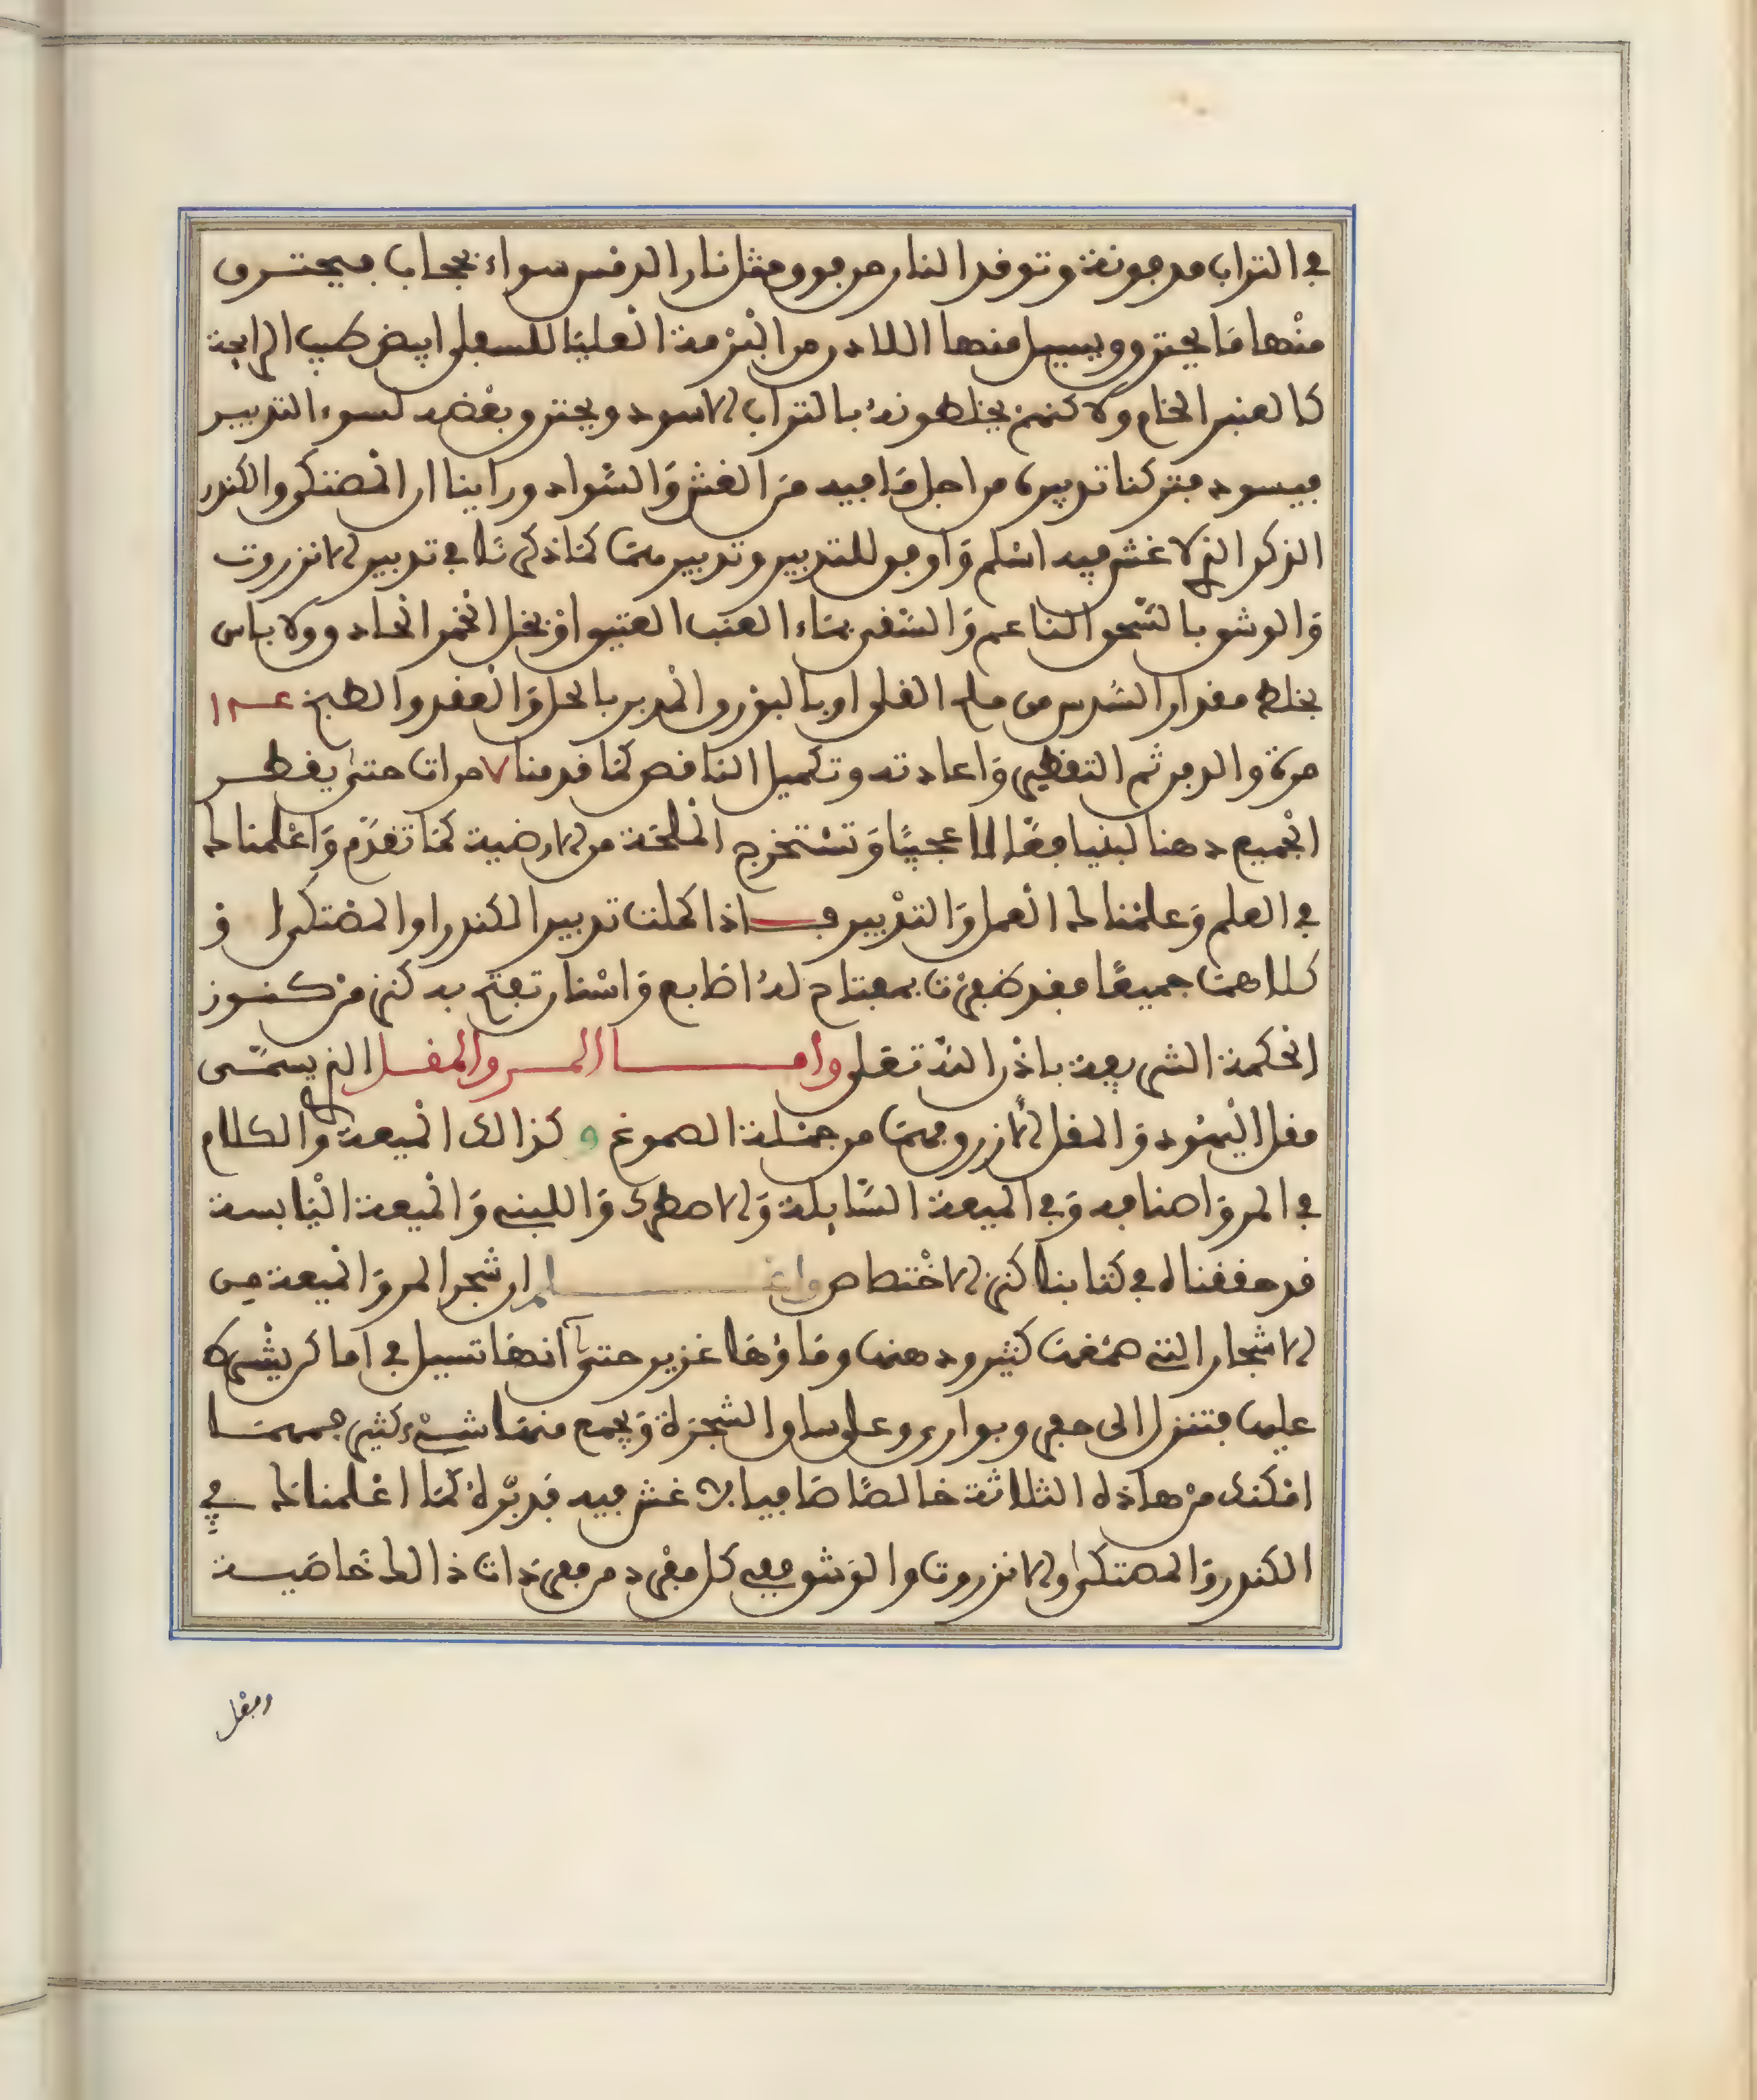 في التراب مدفونة وتوقد النار من فوق مثل نار الدمس سواء بحجاب فيحترق
منها ما يحترق ويسيل منها اللاذن من البرمة العليا للسفلى ابيض طيب الرايحة
كالعنبر الخام ولاكنهم يخلطونه بالتراب الاسود ويحترق بعضه لسوء التدبير
فيسود فتركنا تدبيره من اجل ما فيه من الغش والسواد وراينا ان المصتكى والكندر
الذكر الذي لا غش فيه اسلم واوفق للتدبير وتدبيرهما كما ذكرنا في تدبير الانزروت
والوشق بالسحق الناعم والسقى بماء العنب العتيق او بخل الخمر الحاذق ولا باس
بخلط مقدار السدس من ملح القلى او بالبورق المدبر بالحل والعقد والطبخ
مرة والدفن ثم التقطير واعادته وتكميل الناقص كما قدمنا ٧ مرات حتى يقطر
الجميع دهنا لبنيا فعالا عجيبا وتستخرج الملحة من الارضية كما تقدم واعلمناك
في العلم وعلمناك العمل والتدبير فـاذا كملت تدبير الكندر او المصتكى او
كلاهما جميعا فقد ظفرت بمفتاح له اصابع واسنار تفتح به كنز من كنوز
الحكمة الشريفة باذن الله تعلى وامـا المـر والمقـل الذي يسمى
مقل اليهود والمقل الازرق فهما من جملة الصموغ و كذالك الميعة والكلام
في المر واصنافه وفي الميعة السايلة والاصطرك واللبني والميعة اليابسة
قد حققناه في كتابنا كنز الاختصاص واعـلم ان شجر المر والميعة من
الاشجار التي صمغها كثير ودهنها وماؤها غزير حتى انها تسيل في اماكن يشرط
عليها فتنزل الى حفر وبوارى وعلى ساق الشجرة ويجمع منها شيء كثير فمهمـا
امكنك من هاذه الثلاثة خالصا صافيا لا غش فيه فدبره كما اعلمناك في
الكندر والمصتكى والانزروت والوشق ففي كل مفرد من مفردات ذالك خاصيـة
ومفعل